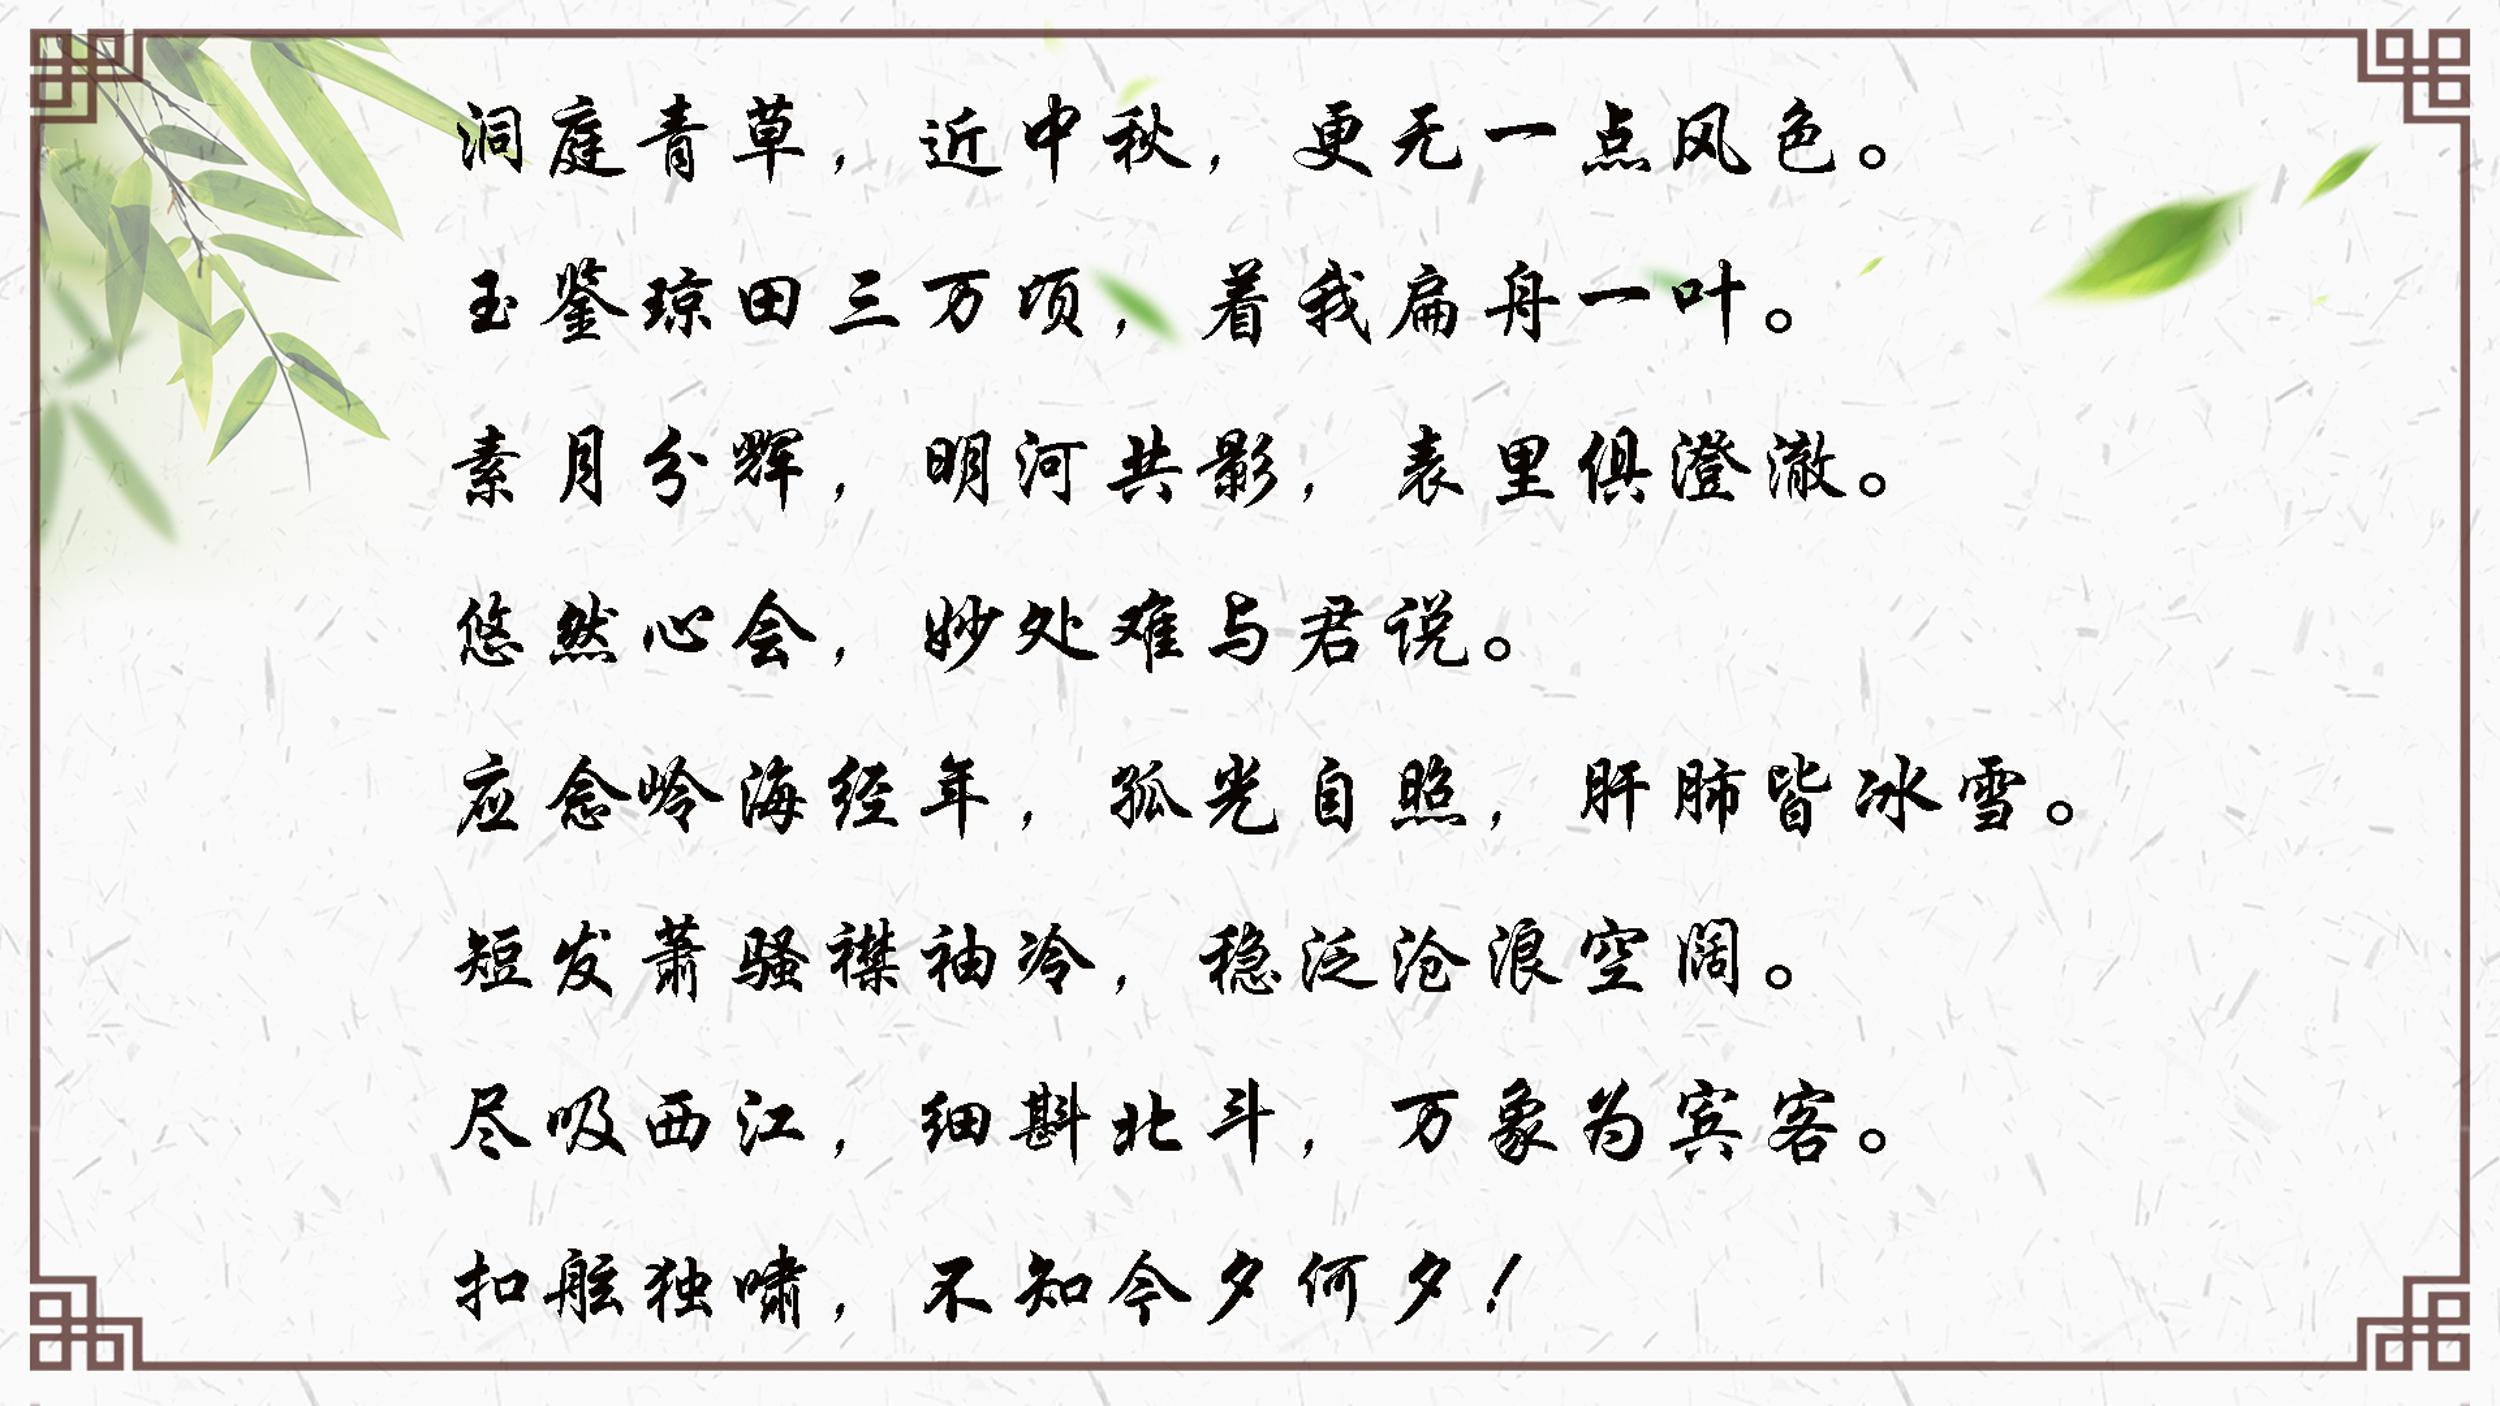 洞庭青草，近中秋，更无一点风色。
玉鉴琼田三万顷，着我扁舟一叶。
素月分辉，明河共影，表里俱澄澈。
悠然心会，妙处难与君说。
应念岭海经年，孤光自照，肝肺皆冰雪。
短发萧骚襟袖冷，稳泛沧浪空阔。
尽吸西江，细斟北斗，万象为宾客。
扣舷独啸，不知今夕何夕！